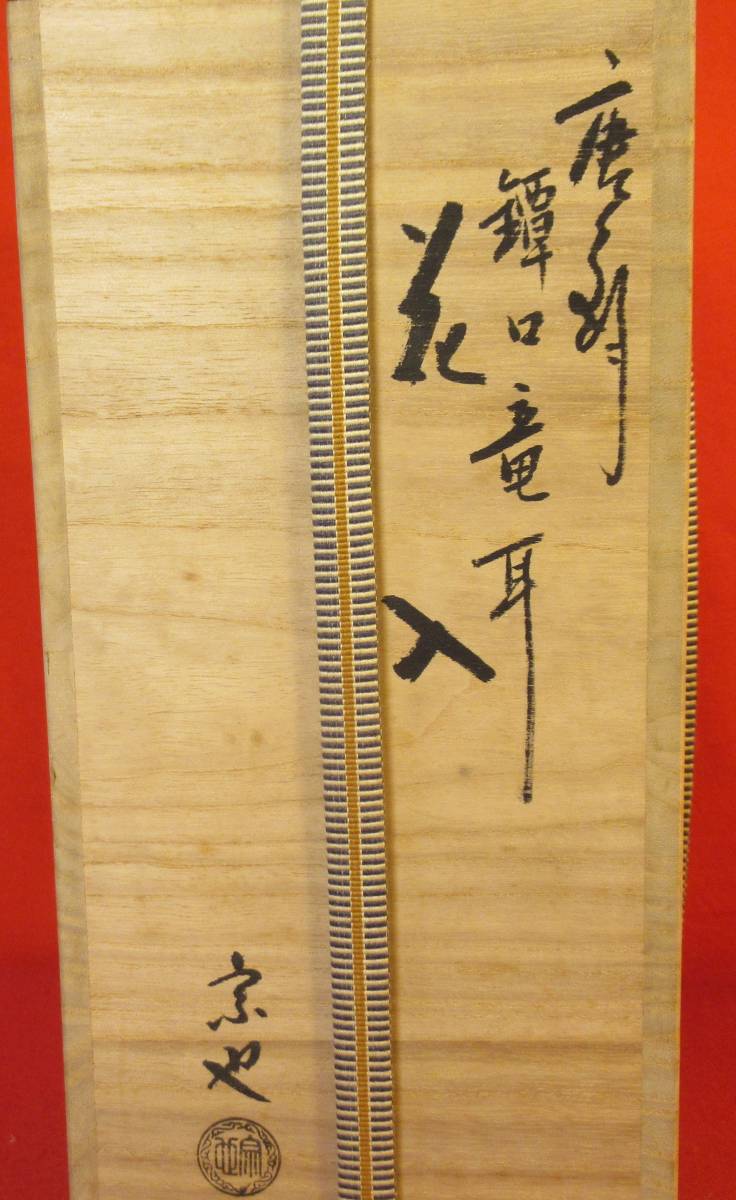 唐銅
鐔口竜耳
花入
宗也